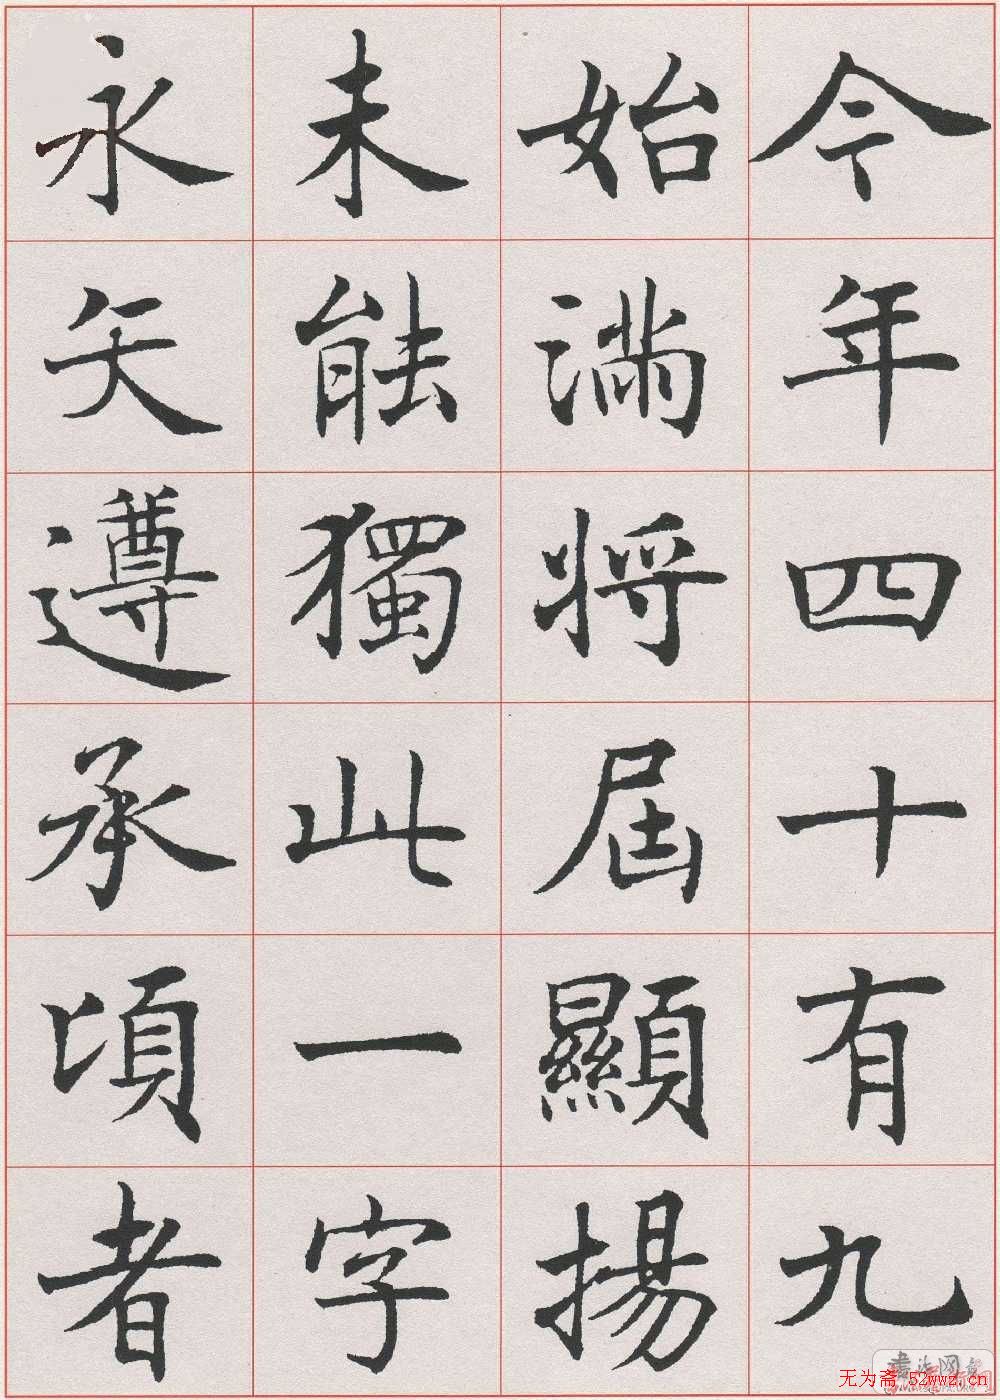 今年四十有九
始滿將屆顯揚
未能獨此一字
永矢遵承頃者
书法网
无为斋 52wwz.cn